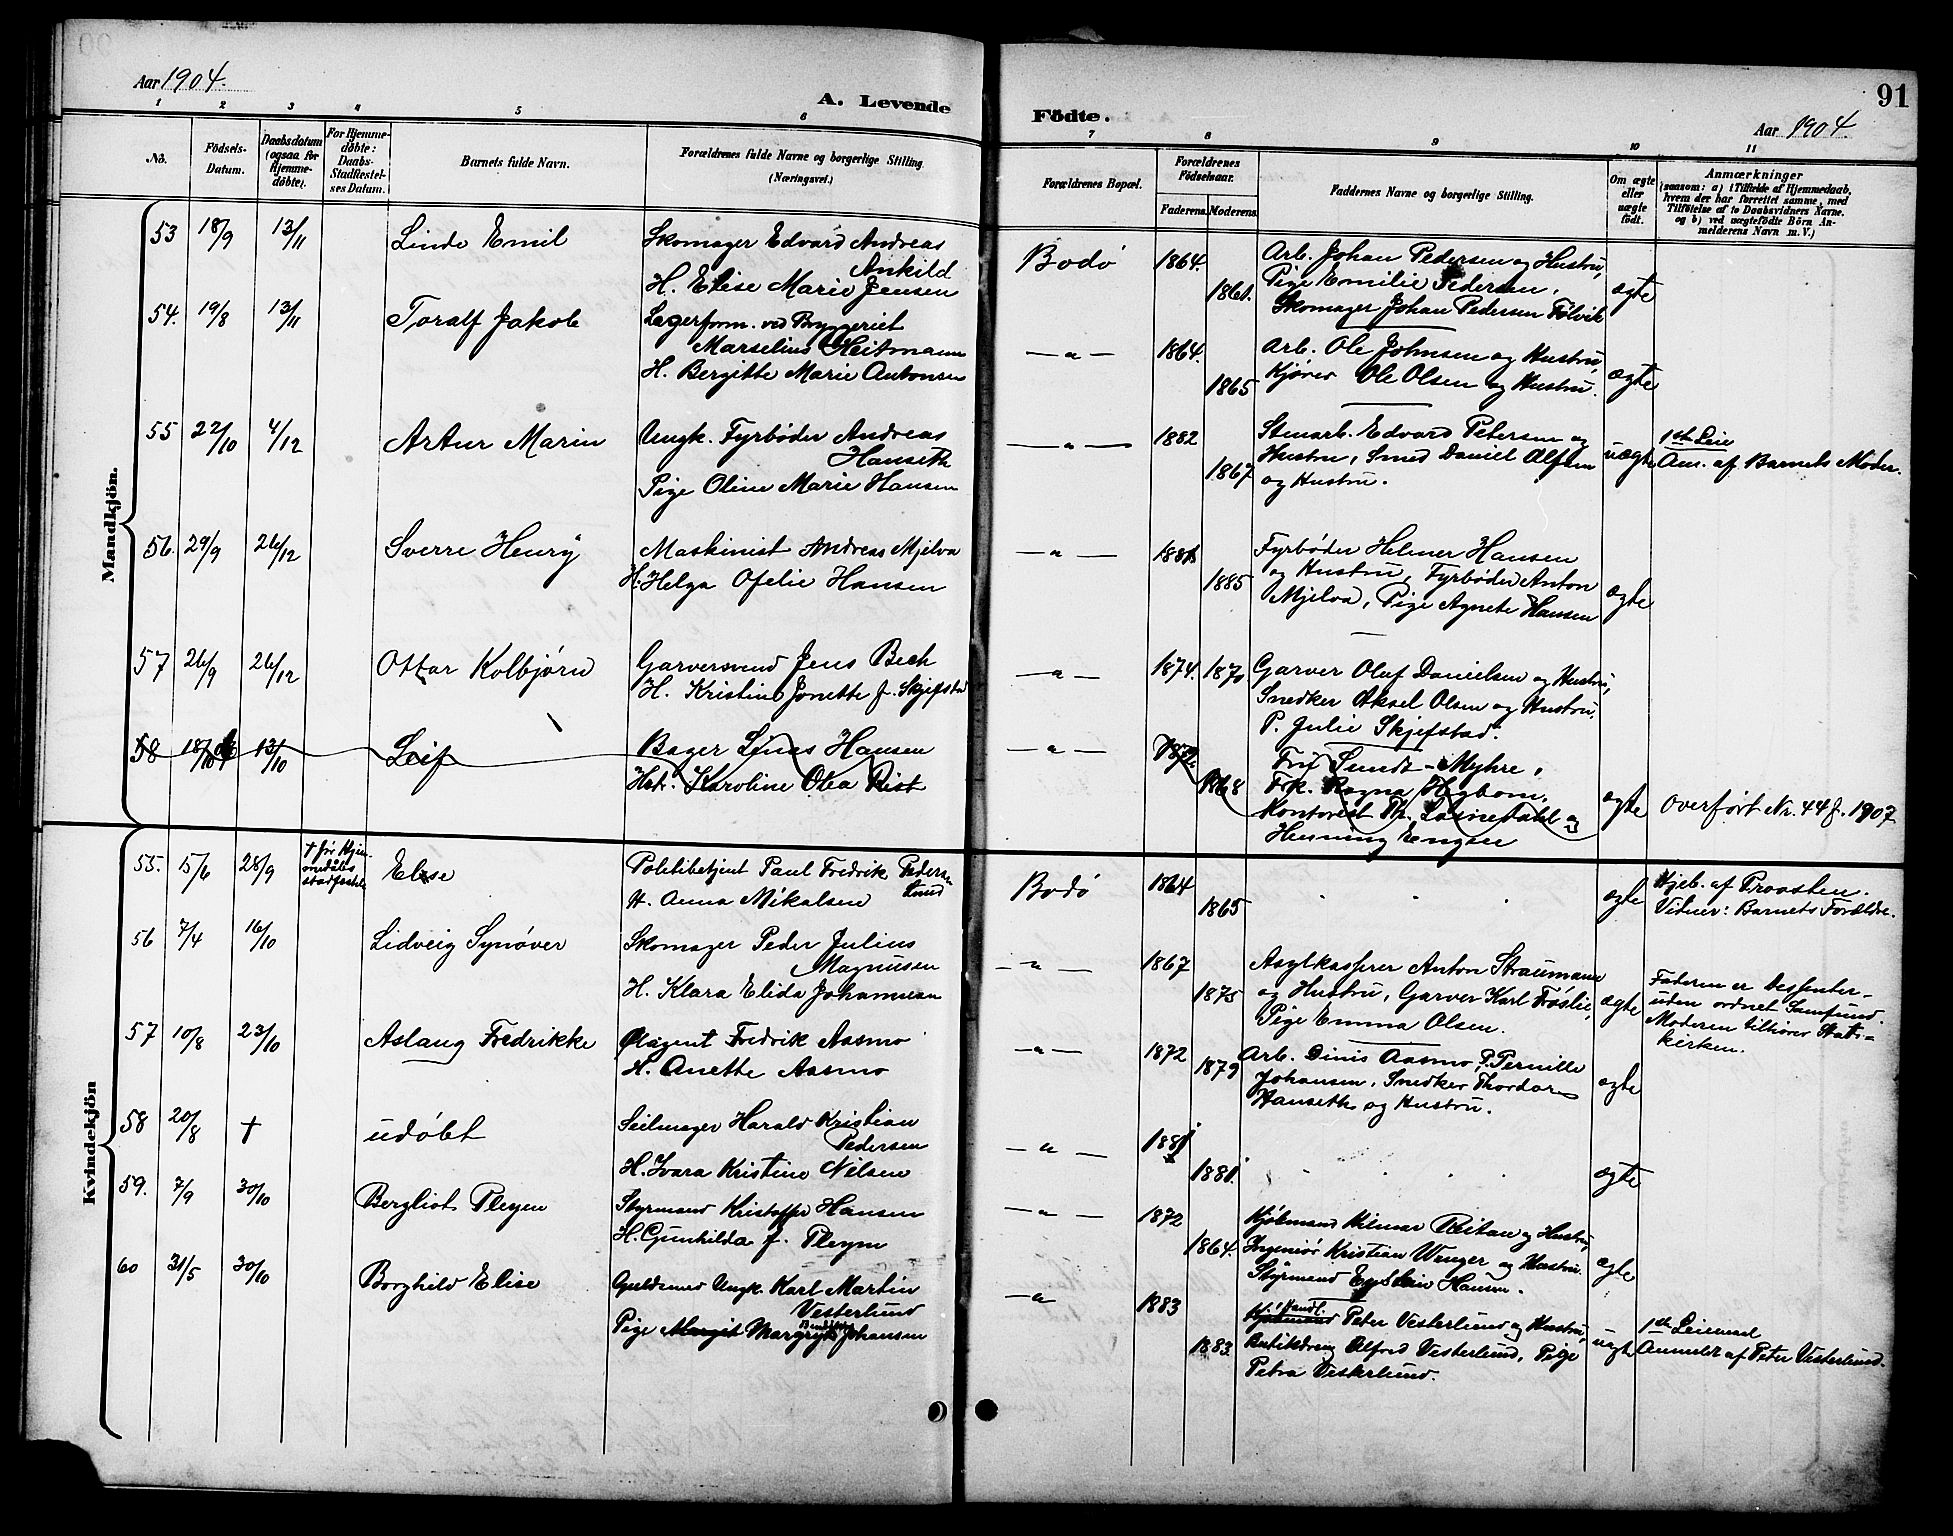 Aar 1904.
A. Levende
Födte.
Aar 1904.
91
1 2 3 4 5 6 7 8 9 10 11
No.
Födsels-Datum.
Daabsdatum (ogsaa for Hjemme-döbte).
For Hjemme-döbte: Daabs-Stadfæstel-ses Datum.
Barnets fulde Navn.
Forældrenes fulde Navne og borgerlige Stilling. (Næringsvei.)
Forældrenes Bopæl.
Forældrenes Födselsaar.
Faderens. Moderens.
Faddernes Navne og borgerlige Stilling.
Om ægte eller uægte födt.
Anmærkninger
(saasom: a) i Tilfælde af Hjemmedaab, hvem der har forrettet samme, med Tilföielse af to Daabsvidners Navne. og b) ved uægtefödte Börn An-melderens Navn m. V.)
Mandkjön.
53 18/9 13/11 Linde Emil
Skomager Edvard Andreas
Ankild
H. Elise Marie Jensen
Bodó 1864. 1861.
Arb. Johan Pedersen og Hustru,
Pige Emilie Pedersen,
Skomager Johan Pedersen Fölvik
ægte
54. 19/8 13/11 Toralf Jakob
Lagerform. ved Bryggeriet
Marselius Heitmann
H. Bergitte Marie Antonsen
— " — 1864. 1865
Arb. Ole Johnsen og Hustru,
Kjører Ole Olsen og Hustru.
ægte
55 22/10 4/12 Artur Marin
Ungk. Fyrbøder Andreas
Hanseth
Pige Oline Marie Hansen
— " — 1882 1867
Stenarb. Edvard Petersen og
Hustru, Smed Daniel Olsen
og Hustru.
uægte
1ste Leie
Anm. af Barnets Moder.
56. 29/9 26/12 Sverre Henry
Maskinist Andreas Mjelva
H. Helga Ofelie Hansen
— " — 1885
Fyrbøder Helmer Hansen
og Hustru, Fyrbøder Anton
Mjelva, Pige Agnete Hansen
ægte
57 26/9 26/12 Ottar Kolbjørn
Garversvend Jens Bech
H. Kristine Jonette f. Skjefstad
— " — 1874. 1870
Garver Oluf Danielsen og Hustru,
Snedker Aksel Olsen og Hustru,
P. Julie Skjefstad.
58 18/10 13/10 Leif
Bager Linus Hansen
Hstr. Karoline Olea Rist
— " — 1872. 1868
Fru Sundt-Myhre,
Frk. Ragna Hegbom,
Kontorist Th. Losnedahl og
Henning Engsee
ægte
Overført Nr. 44 f. 1907
Kvindekjön
55. 15/6 28/9 † før Hjem-medåbs stadfestelse Elise
Politibetjent Paul Fredrik Pedersen
Lund
H. Anna Mikalsen
Bodó 1864 1865
" " "
ægte
Hjeb. af Provsten.
Vidner: Barnets Forældre.
56 7/4 16/10 Lidveig Synøver
Skomager Peder Julius
Magnusen
H. Klara Elida Johannesen
— " — 1867 1875
Asylkasserer Anton Straumann
og Hustru, Garver Karl Frøslie,
Pige Emma Olsen.
ægte
Faderen er Dessenter-
uden ordnet Samfund.
Moderen tilhører Stats-
kirken.
57 10/8 23/10 Aslaug Fredrikke
Ølagent Fredrik Aasmo
H. Anette Aasmo
— " — 1872 1879
Arb. Dinis Aasmo, P. Pernille
Johansen, Snedker Thordar
Hanseth og Hustru.
ægte
58 20/8 † udøbt
Seilmager Harald Kristian
Pedersen
H. Ivara Kristine Nilsen
— " — 1881 1881.
" " "
ægte
59. 7/9 30/10 Bergliot Pleym
Styrmand Kristoffer Hansen
H. Gunhilda f. Pleym
— " — 1872 1864.
Kjøbmand Hilmar Reitan og Hustru,
Ingeniør Kristian Wenger og Hustru.
Styrmand Eystein Hansen.
ægte
60 31/5 30/10 Borghild Elise
Guldsmed Ungk. Karl Martin
Vesterlund
Pige Margit Margrythe Johansen
— " — 1883 1883.
Handl.
Kjøbmand Peter Vesterlund og Hustru,
Butikdreng Alfred Vesterlund, Pige
Petra Vesterlund.
uægte
1ste Leiemaal
Anmeldt af Peter Vesterlund.